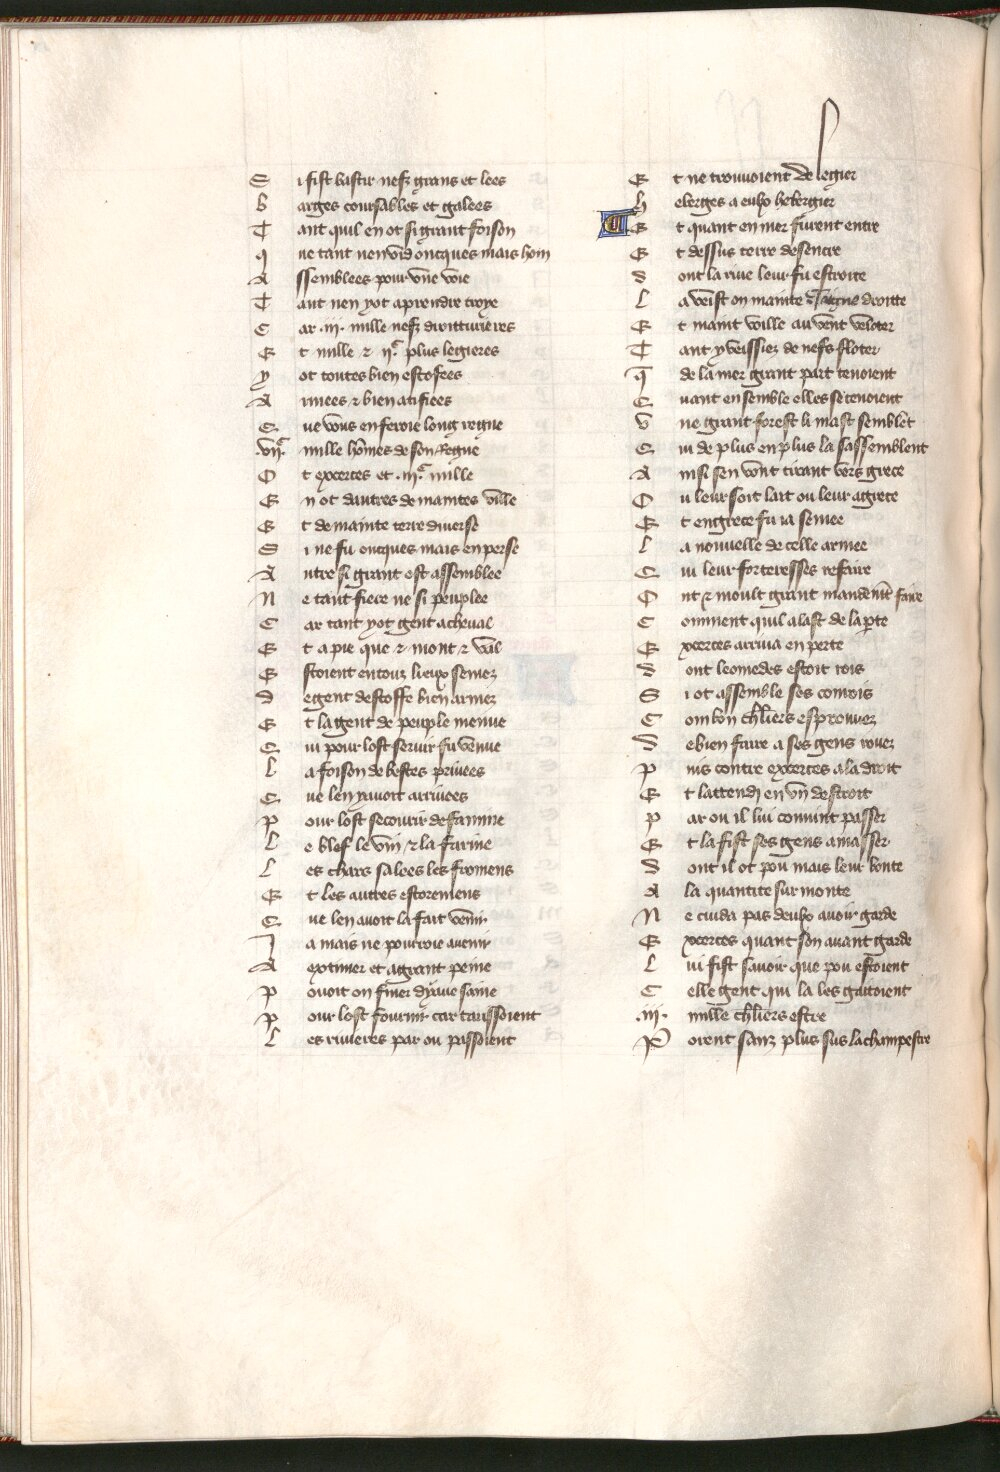 S i fist bastir nefz grans et lees
B arges coursables et galees
T ant quil en ot si grant foison
q ne tant nen vid oncques mais hom
A ssemblees pour vne voie
T ant nen y ot a prendre troye
C ar .iii. mille nefz droitturieres
E t mille et iic plus legieres
y ot toutes bien estofees
A rmees et bien atifiees
Q ue vous en feroie long regne
viic. mille hões de son Regne
O t exerces et .iiic. mille
E n ot dautres de maintes ville
E t de mainte terre diuerse
S i ne fu oncques mais en perse
A utre si grant est assemblee
N e tant fiere ne si peuplee
C ar tant y ot gent a cheual
E t a pie que et mont et val
E stoient en touz lieux semez
d e gent destoffe bien armez
E t la gent de peuple menue
Q ui pour lost seruir fu venue
L a foison de bestes priuees
Q ue len y auoit arriuees
P our lost secourir de famine
L e blef le vin et la farine
L es chars salees les fromens
E t les autres estoremens
Q ue len auoit la fait venir
J a mais ne pourroie auenir
A exprimer et a grant peine
P ouoit on finer dyaue saine
P our lost fournir car tarissoient
L es riuieres par ou passoient
E t ne trouuoient de legier
h eberges a eulx hebergier
E t quant en mer furent entre
E t dessus terre desencre
D ont la riue leur fu estroite
L a veist on mainte ligne droitte
E t maint voille au vent veloter
T ant y veissiez de nefs floter
q de la mer grant part tenoient
Q uant ensemble elles se tenoient
V ne grant forest li mast semblet
Q ui de plus en plus la sassemblent
A insi sen vont tirant vers grece
O u leur soit lait ou leur agrece
E t en grece fu ia semee
L a nouuelle de celle armee
Q ui leur forteresses refaire
O nt et moult grant mandemt faire
C omment quil a last de la pte
E xerces arriua en perte
D ont leomedes estoit rois
S i ot assemble ses conrois
C om bon chlrs esprouuez
D e bien faire a ses gens rouez
P uis contre exerces a la droit
E t lattendi en vn destroit
P ar ou il lui conuint passer
E t la fist ses gens amasser
D ont il ot pou mais leur bonte
A la quantite surmonte
N e cuida pas deulx auoir garde
E xerces quant son auant garde
L ui fist sauoir que pou estoient
C elle gent qui la les gaitoient
.iii. mille chlrs estre
P oient sanz plus sus la champestre